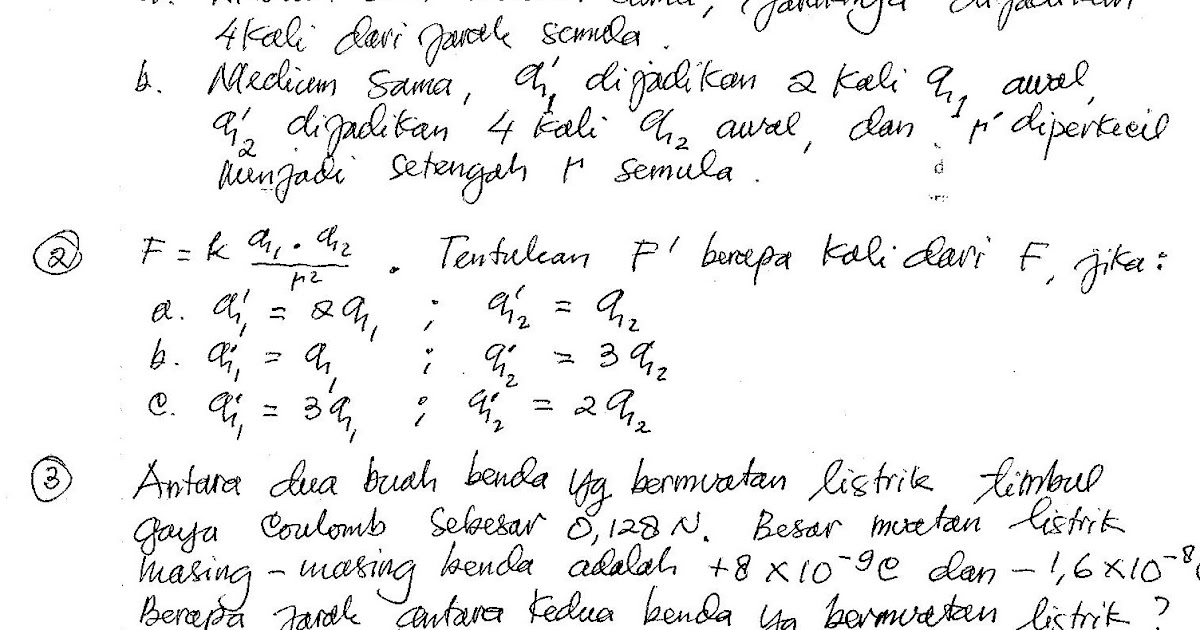 4 kali dari jarak semula.
b. Medium sama, q₁' dijadikan 2 kali q₁ awal,
q₂' dijadikan 4 kali q₂ awal, dan r' diperkecil
menjadi setengah r semula.
② F = k q₁ . q₂ / r² . Tentukan F' berapa kali dari F, jika :
a. q₁' = 2q₁ ; q₂' = q₂
b. q₁' = q₁ ; q₂' = 3q₂
c. q₁' = 3q₁ ; q₂' = 2q₂
③ Antara dua buah benda yg bermuatan listrik timbul
gaya Coulomb sebesar 0,128 N. Besar muatan listrik
masing-masing benda adalah +8 × 10⁻⁹C dan -1,6 × 10⁻⁸
Berapa jarak antara kedua benda yg bermuatan listrik ?